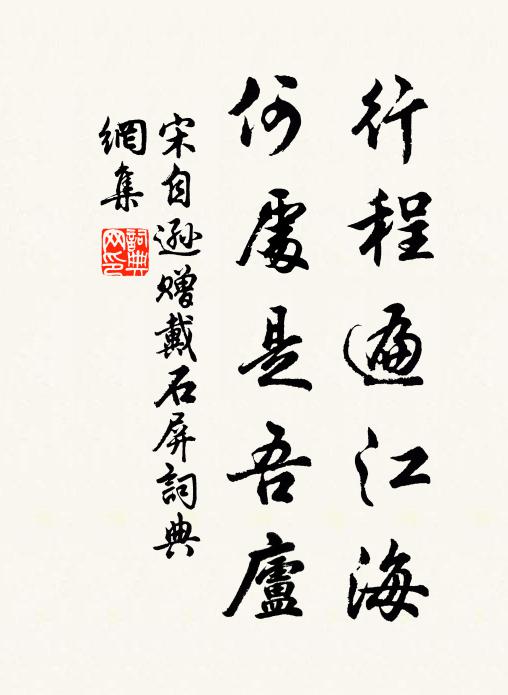 行程遍江海
何處是吾廬
宋自遜贈戴石屏詞典
網集
詞典
网印